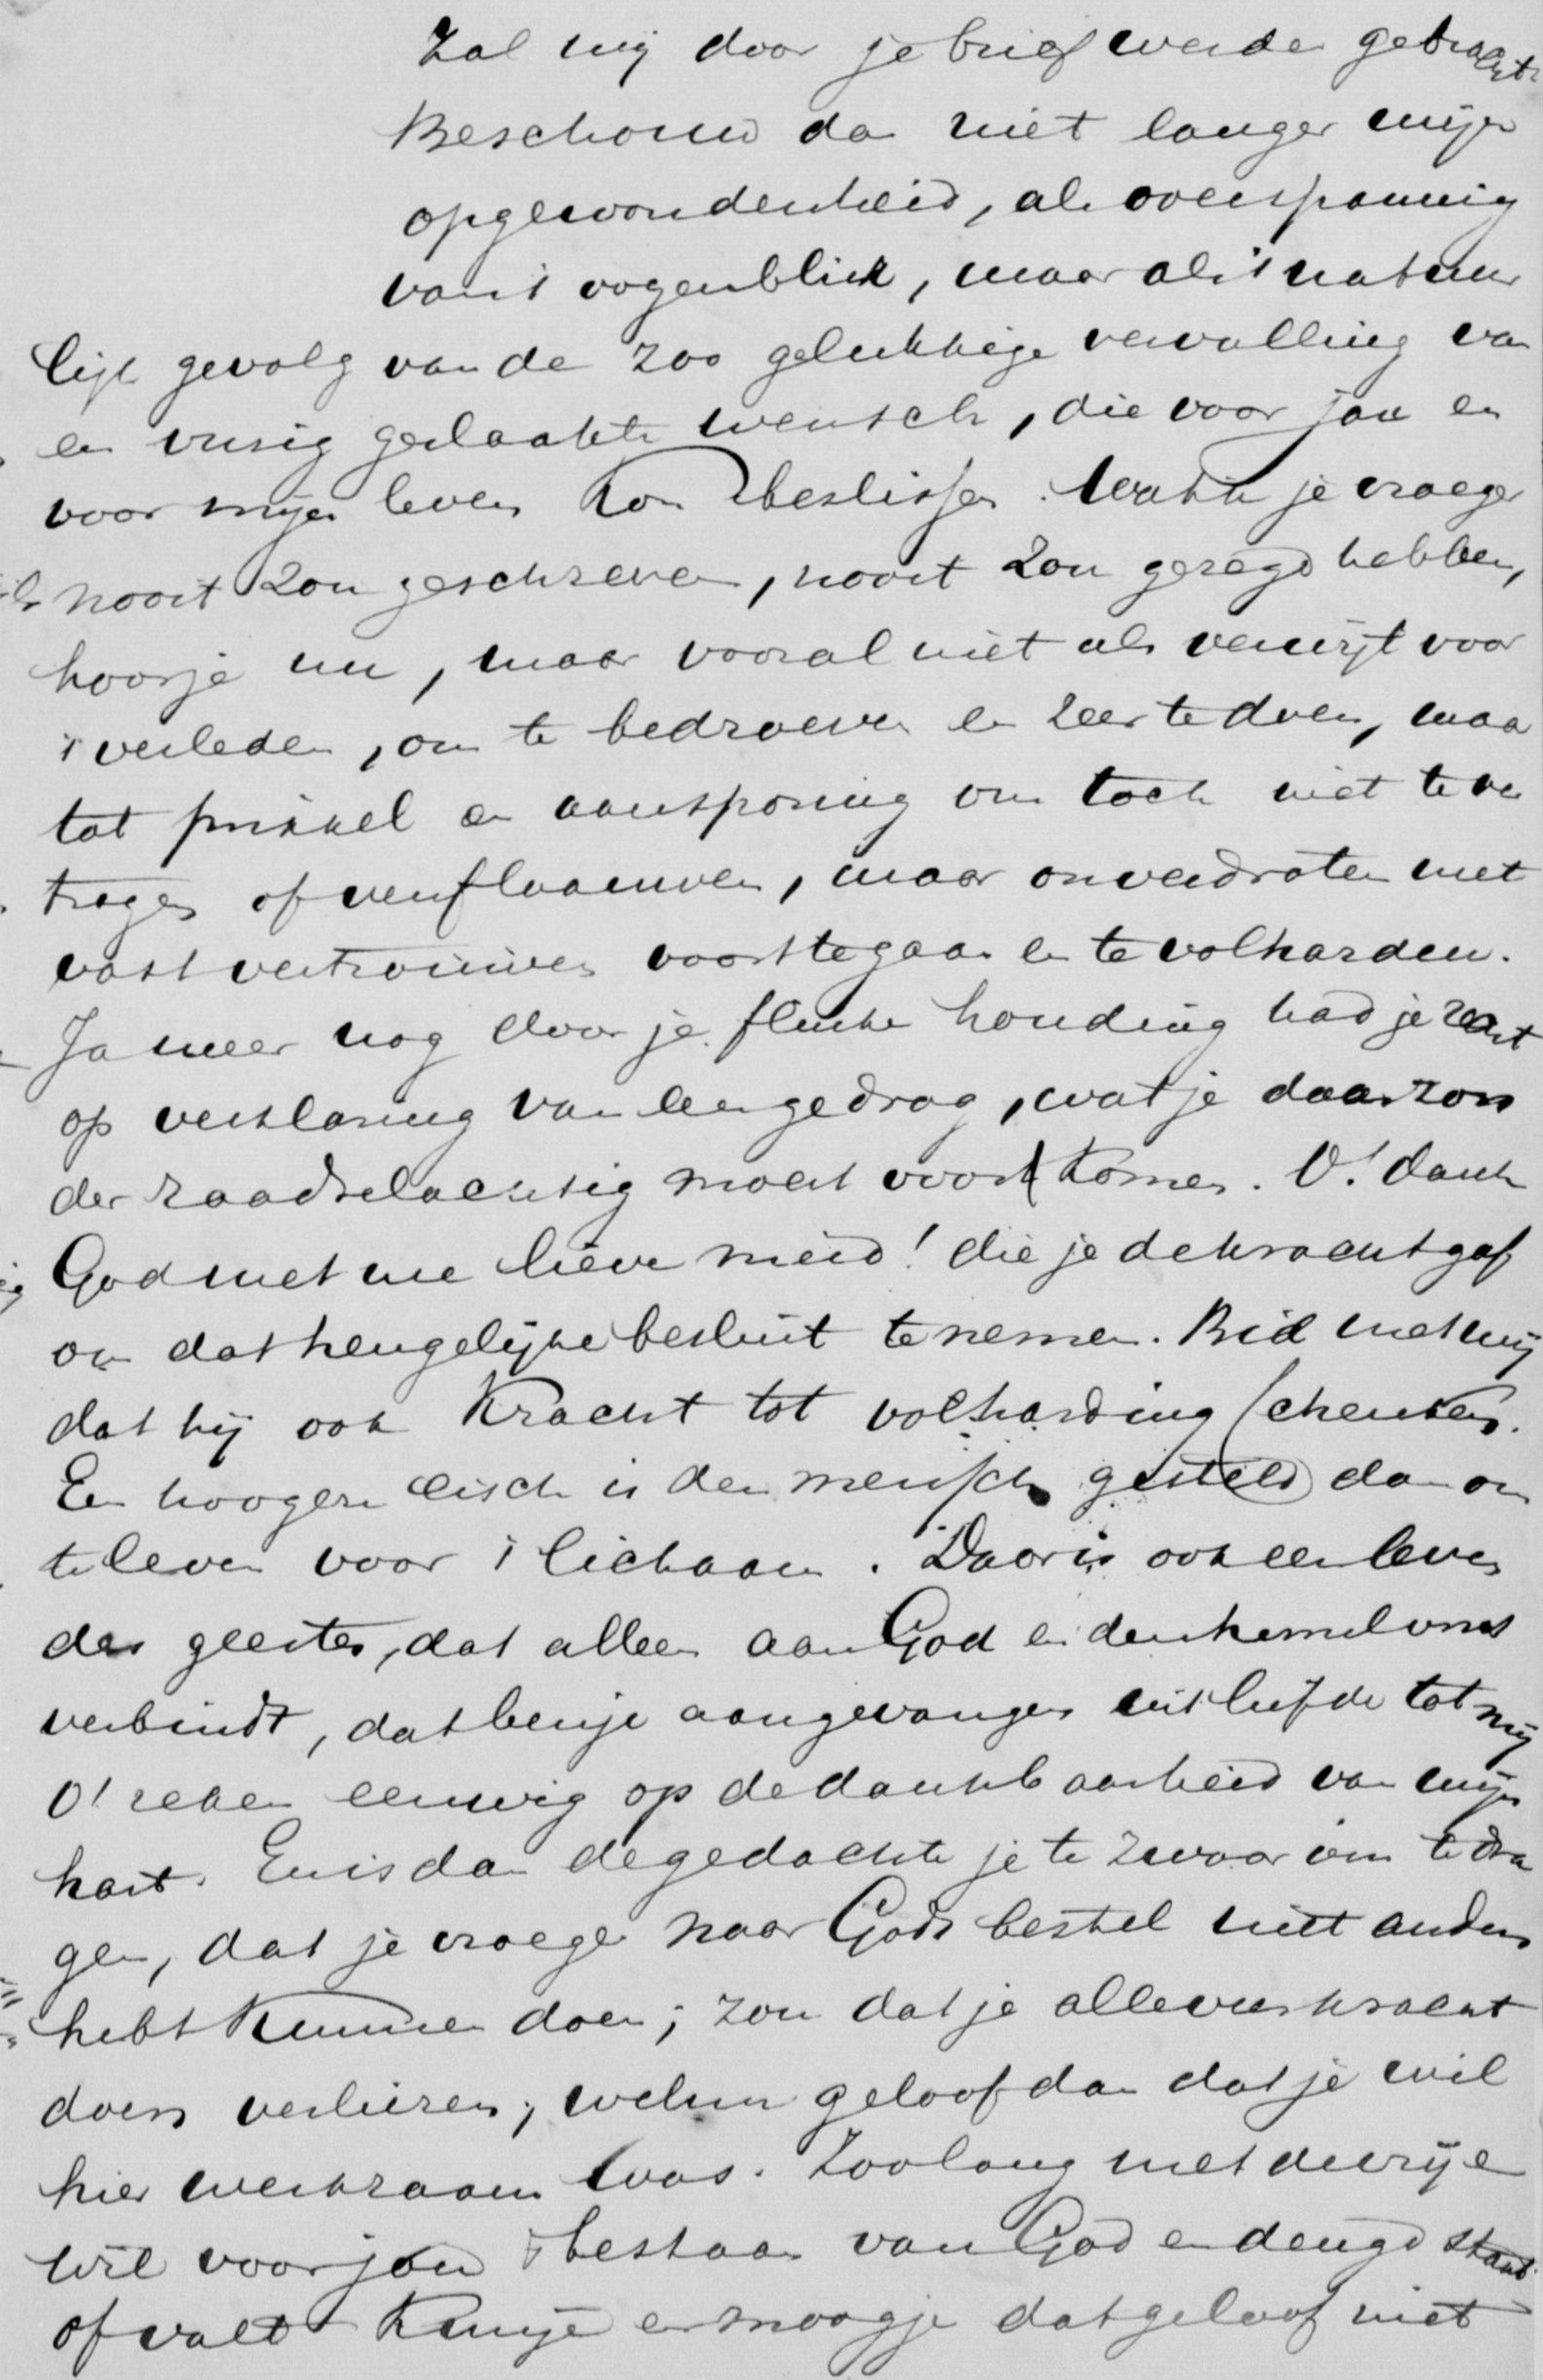 Zal mij door je brief worden gebracht.
Beschouw dan niet langer mijn
opgewondenheid, als overspanning
van 't oogenblik, maar als 't natuur
lijk gevolg van de zoo gelukkige vervulling van
een vurig geslaakte wensch, die voor jou en
voor mijn leven kon beslissen. Wat ik je vroeger
nooit zou geschreven, nooit zou gezegd hebben,
hoor je nu, maar vooral niet als verwijt voor
't verleden, om te bedroeven en zeer te doen, maar
tot prikkel en aansporing om toch niet te ver
tragen of verflaauwen, maar onverdroten met
vast vertrouwen voort te gaan en te volharden.
Ja meer nog door je flinke houding had je recht
op verklaring van een gedrag, wat je daar zon
der raadselachtig moest voorkomen. O! dank
God met me lieve meid! die je de kracht gaf
om dat heugelijke besluit te nemen. Bid met mij
dat hij ook kracht tot volharding schenken.
Een hoogere eisch is den mensch gesteld dan om
te leven voor 't lichaam. Daar is ook een leven
des geestes, dat alleen aan God en den hemel ons
verbindt, dat ben je aangevangen uit liefde tot mij
O! reken eeuwig op de dankbaarheid van mijn
hart. En is dan de gedachte je te zwaar om te dra
gen, dat je vroeger naar Gods bestel niet anders
hebt kunnen doen; zou dat je alle veerkracht
doen verliezen; welnu geloof dan dat je wil
hier werkzaam was. Zoolang met de vrije
wil voor jou 't bestaan van God en deugd staat
of valt kun je en moog je dat geloof niet